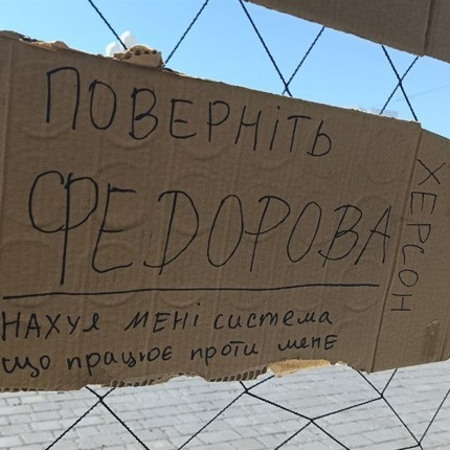 ПОВЕРНІТЬ
ФЕДОРОВА
НАХУЯ МЕНІ система
що працює проти мене
ХЕРСОН